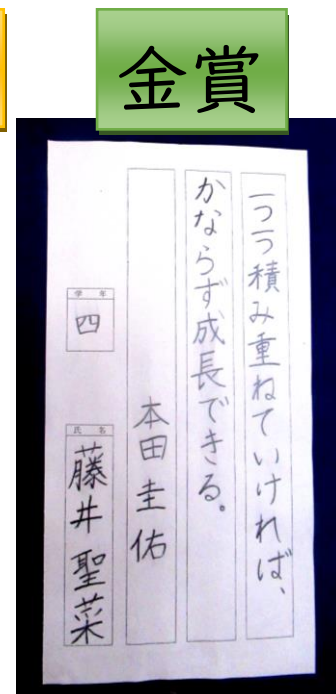 金賞
一つ一つ積み重ねていければ、
かならず成長できる。
本田圭佑
学年
四
氏名
藤井聖菜